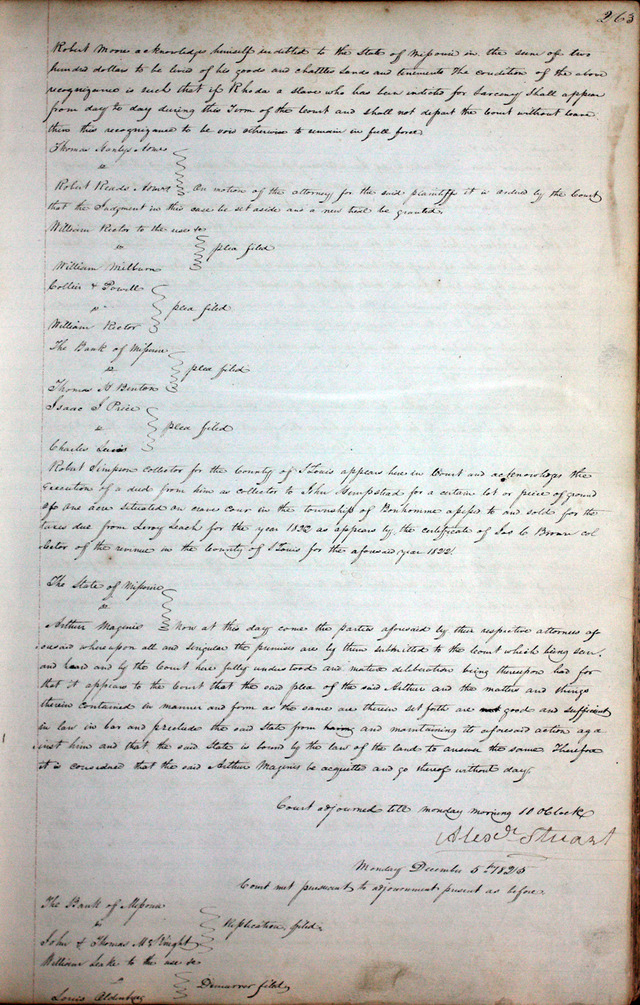 263
Robert Moore acknowledges himself indebted to the State of Missouri in the sum of two
hundred dollars to be levied of his goods and chattles lands and tenements The condition of the above
recognizance is such that if Rhoda a slave who has been indicted for Larceny Shall appear
from day to day during this Term of the Court and shall not depart the Court without leave
then this recognizance to be void otherwise to remain in full force
Thomas Hanlys Admr
vs
Robert Reads Admrs On motion of the attorney for the said plaintiff it is ordered by the Court
that the Judgment in this case be set aside and a new trial be granted
William Rector to the use &c
vs plea filed
William Milburn
Collier & Powell
vs plea filed
William Rector
The Bank of Missouri
vs plea filed
Thomas H Benton
Isaac J Price
vs plea filed
Charles Lucas
Robert Simpson collector for the County of St Louis appears here in Court and acknowledges the
Execution of a deed from him as collector to John Hempstead for a certain lot or piece of ground
of one acre situated on creve cour in the township of Bonhomme assessed to and sold for the
taxes due from Leroy Leach for the year 1822 as appears by the certificate of Jas C Brown col
lector of the revenue in the County of St Louis for the aforesaid year 1822
The State of Missouri
vs
Arthur Magenis Now at this day come the parties aforesaid by their respective attornies af
oresaid whereupon all and singular the premises are by them submitted to the Court which being seen
and heard and by the Court here fully understood and mature deliberation being thereupon had for
that it appears to the Court that the said plea of the said Arthur and the matters and things
therein contained in manner and form as the same are therein set forth are not good and sufficient
in law in bar and preclude the said State from having and maintaining its aforesaid action aga
inst him and that the said State is bound by the law of the land to answer the same Therefore
it is considered that the said Arthur Magenis be acquitted and go thereof without day
Court adjourned till monday morning 10 OClock
Alexdr Stuart
Monday December 5th 1825
Court met pursuant to adjournment present as before
The Bank of Missouri
vs Replication filed
John & Thomas McKnight
William Leake to the use &c
Demurrer filed
Louis